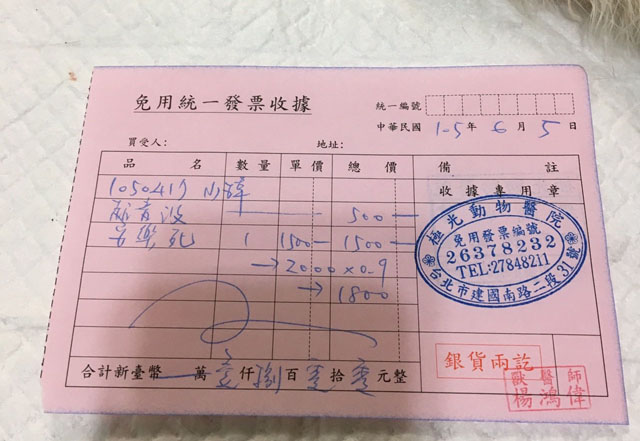 免用統一發票收據
統一編號
中華民國 105年 6月 5日
買受人: 地址:
品名 數量 單價 總價 備註
收據專用章
1050417 小
超音波 500
安樂死 1 1500 1500
→2000 x 0.9
→1800
極光動物醫院
免用發票編號
26378232
TEL:27848211
台北市建國南路二段31號
合計新臺幣 萬壹仟捌百零拾零元整
銀貨兩訖
獸醫師
楊鴻偉